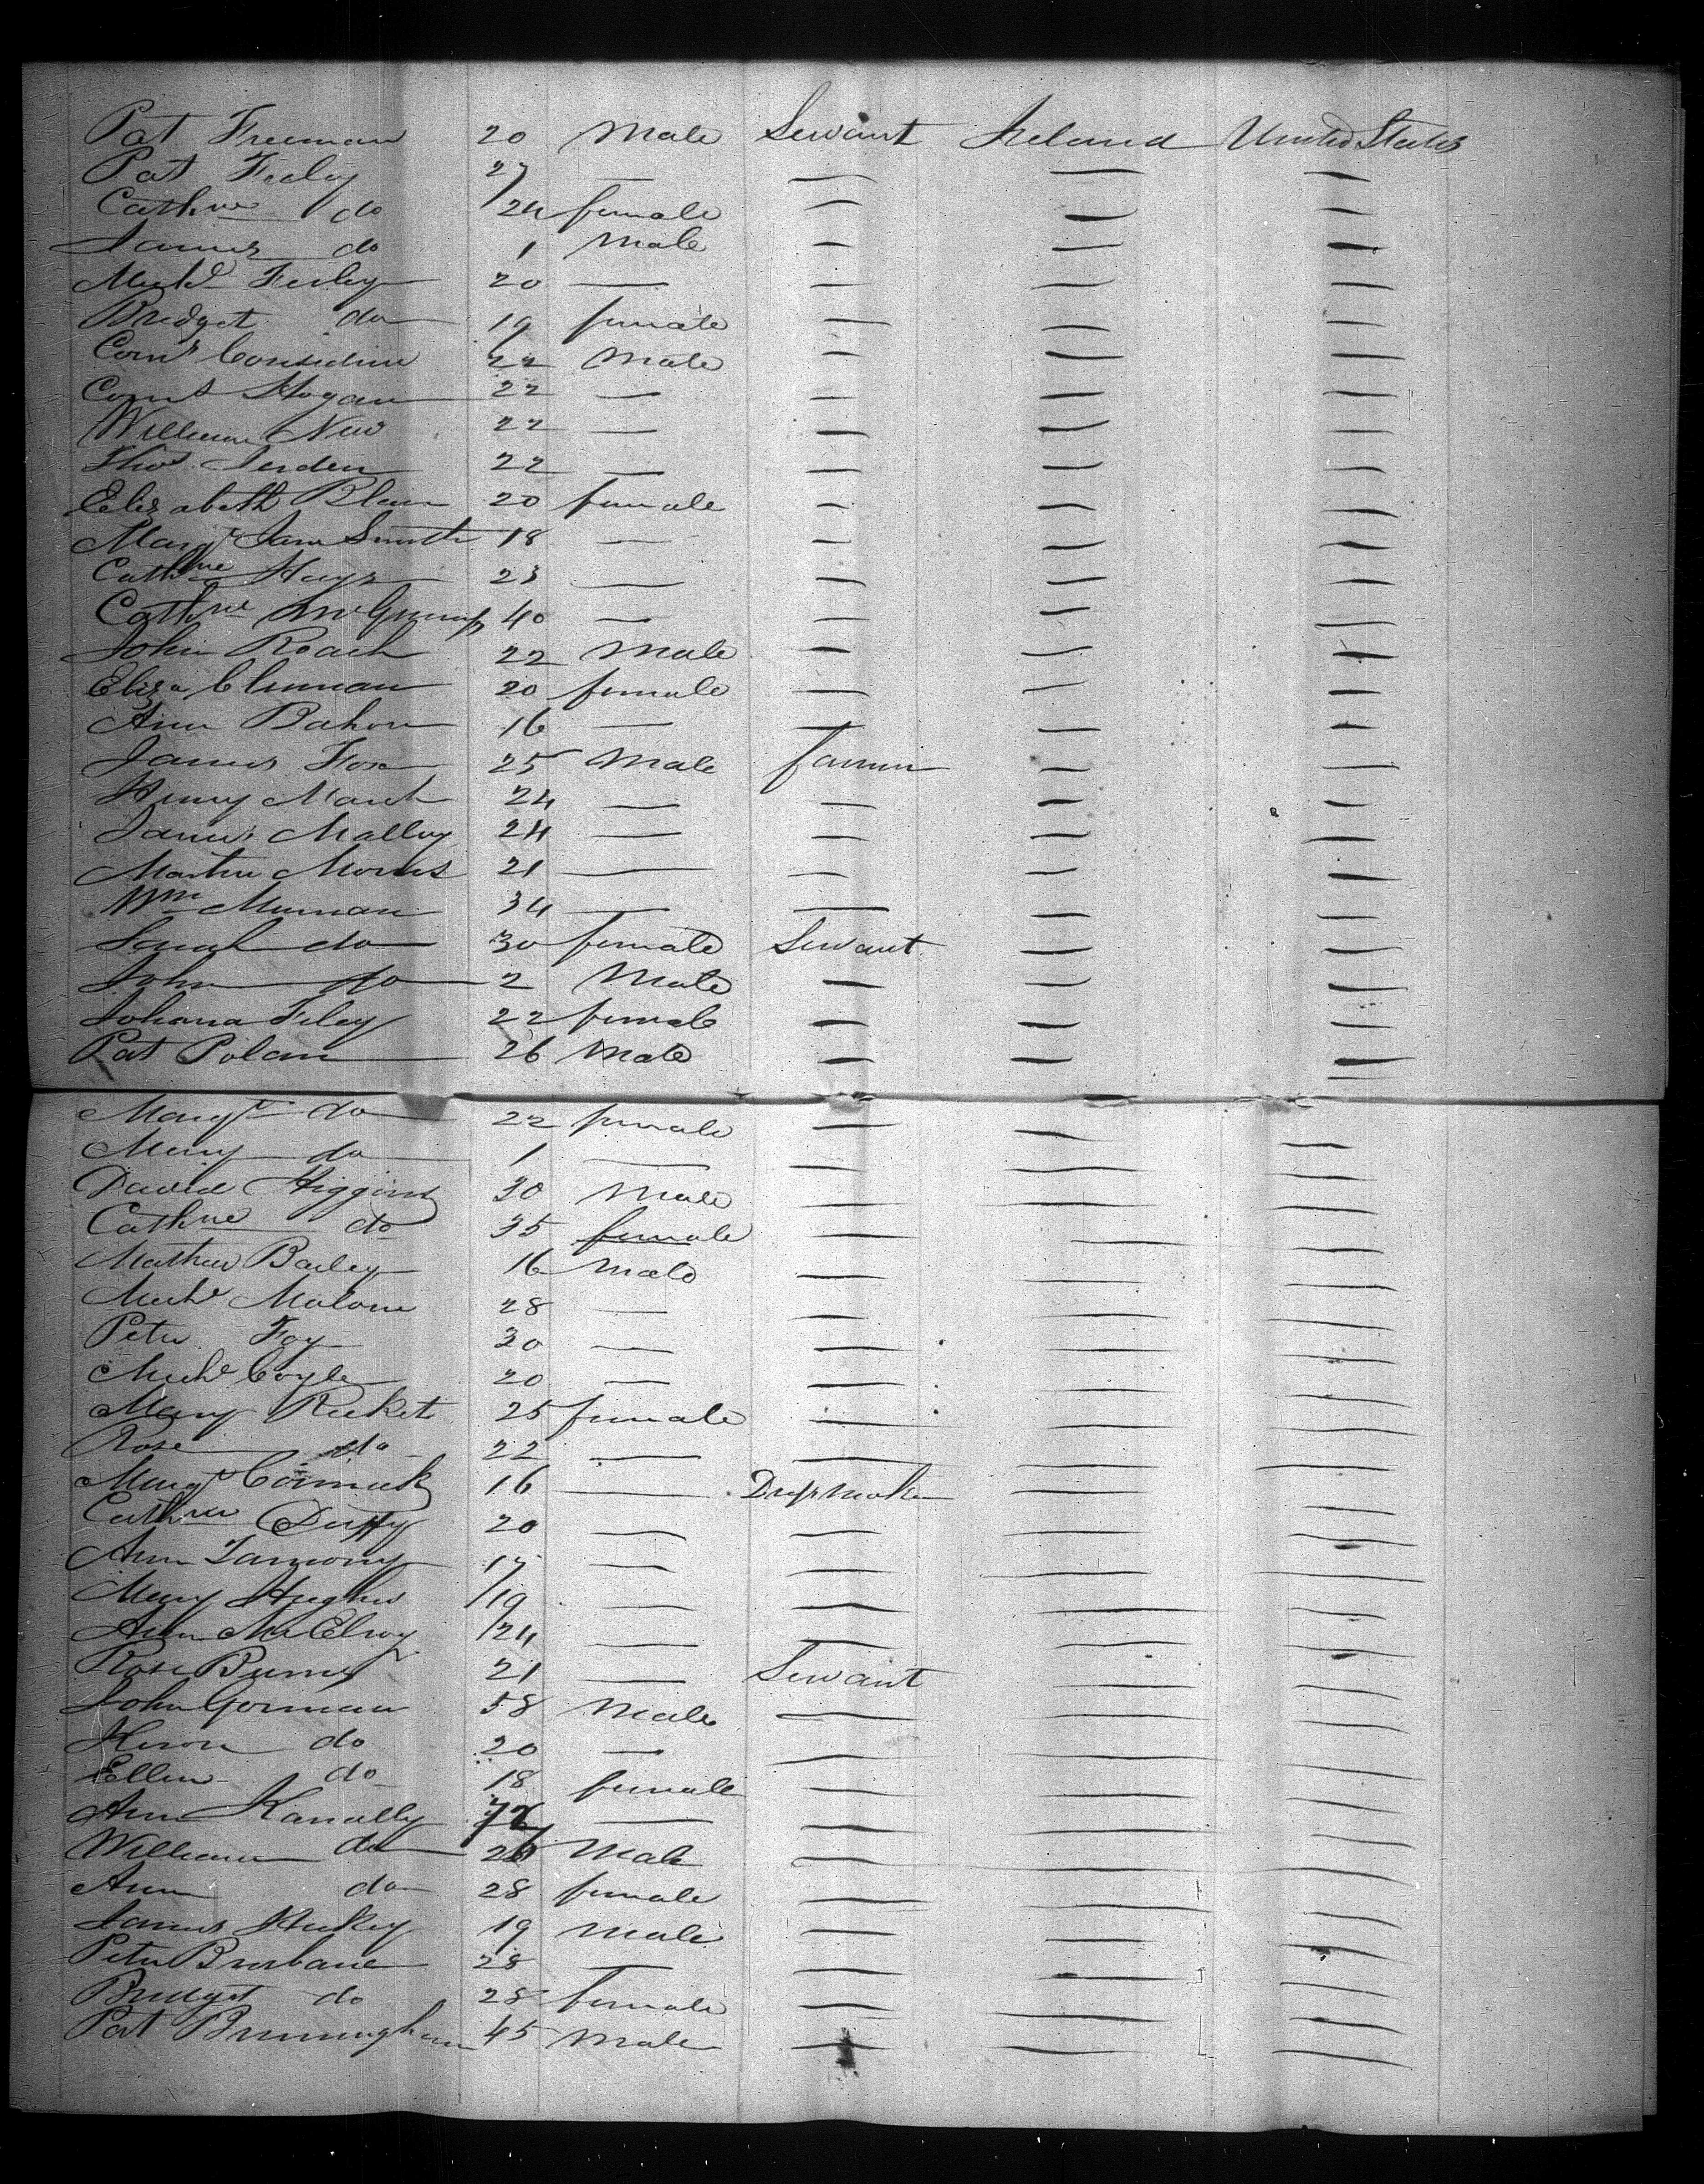 Pat Freeman 20 Male Servant Ireland United States
Pat Feeley 27 — — — —
Cathne do 24 female — — —
James do 1 Male — — —
Michl Feeley 20 — — — —
Bridget do 19 female — — —
Corns Considine 22 Male — — —
Corns Hogan 22 — — — —
William New 22 — — — —
Thos. 22 — — — —
Elizabeth 20 female — — —
Margt Jane Smith 18 — — — —
Cathne Hays 23 — — — —
Cathne 40 — — — —
John Roach 22 Male — — —
Eliza 20 female — — —
Ann Bahon 16 — — — —
James Fox 25 Male farmer — —
Henry March 24 — — — —
James Malley 24 — — — —
Martin Morris 21 — — — —
Wm Murnan 34 — — — —
Sarah do 30 female Servant — —
John do 2 Male — — —
Johana Feley 22 female — — —
Pat Polan 26 Male — — —
Margt do 22 female — — —
Mary do 1 — — — —
David Higgins 30 Male — — —
Cathne do 35 female — — —
Mathew Bailey 16 Male — — —
Michl Malone 28 — — — —
Peter Foy 30 — — — —
Michl Coyle 20 — — — —
Mary Ricket 25 female — — —
Rose do 22 — — — —
Margt Cormick 16 — Dressmaker — —
Cathne Duffy 20 — — — —
Ann 17 — — — —
Mary Hughes 19 — — — —
Ann McElroy 24 — — — —
Rose Burns 21 — Servant — —
John Gorman 58 Male — — —
do 20 — — — —
Ellen do 18 female — — —
Ann Kanally — — — —
William do 26 Male — — —
Ann do 28 female — — —
James Hickey 19 Male — — —
Peter Brisbane 28 — — — —
Bridget do 28 female — — —
Pat Brminngham 45 Male — — —